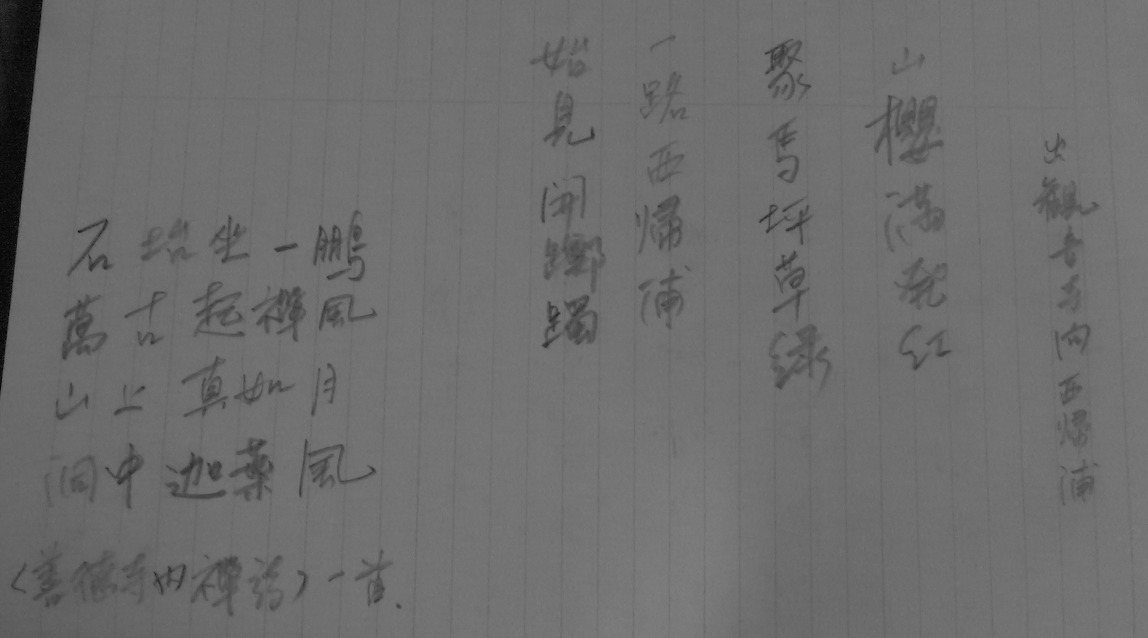 出觀音寺向西帰浦
山櫻滿發紅
聚馬坪草綠
一路西帰浦
始見開躑躅
石坮坐一鵬
萬古起禪風
山上真如月
洞中迦葉風
<善德寺內禪詩>一首.